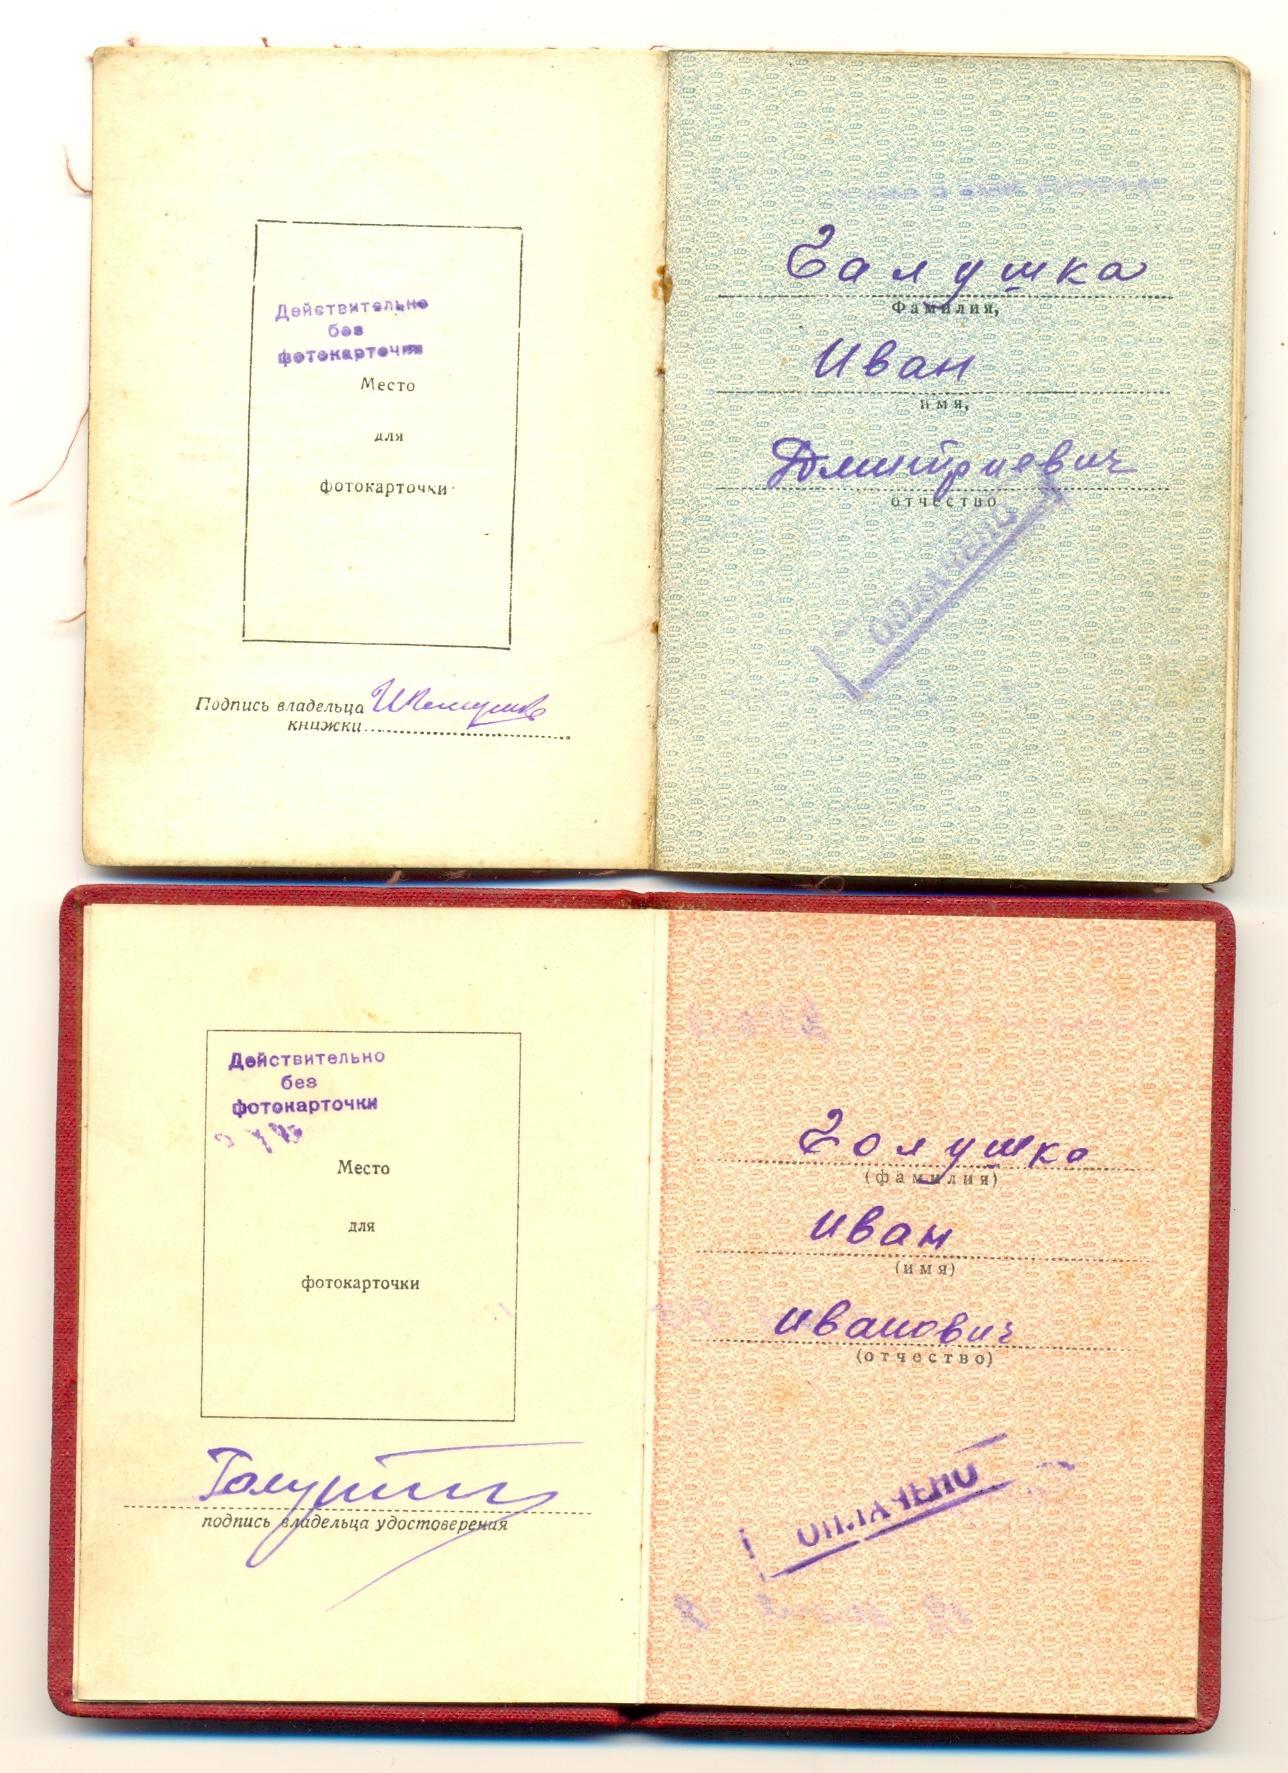 Действительно
без
фотокарточки
Место
для
фотокарточки
Подпись владельца
книжки
Галушка
Фамилия,
Иван
имя,
Дмитриевич
отчество
ОПЛАЧЕНО
Действительно
без
фотокарточки
Место
для
фотокарточки
подпись владельца удостоверения
Голушко
(фамилия)
Иван
(имя)
Иванович
(отчество)
ОПЛАЧЕНО